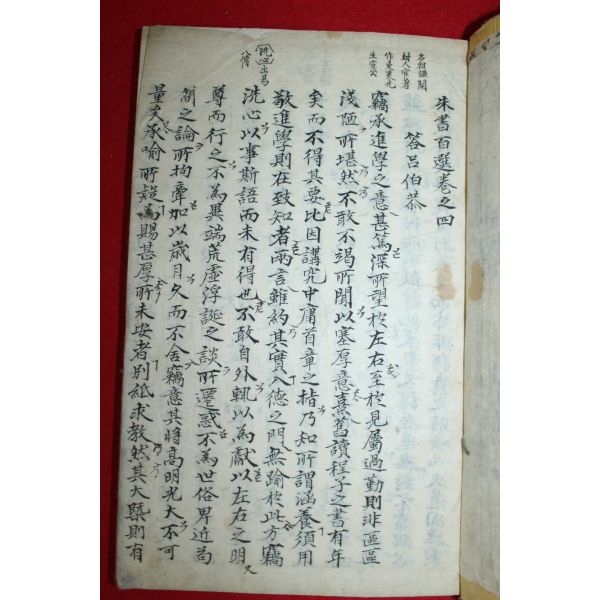 朱書百選卷之四
答呂伯恭
竊承進學之意甚篤深所望於左右至於見屬過勤則非區區
淺陋所堪然不敢不竭所聞以塞厚意熹舊讀程子之書有年
矣而不得其要比因講究中庸首章之指乃知所謂涵養須用
敬進學則在致知者兩言雖約其實入德之門無踰於此方竊
洗心以事斯語而未有得也不敢自外輒以為獻以左右之明
尊而行之不為異端荒虛浮誕之談所遷惑不為世俗卑近苟
簡之論所拘牽加以歲月久而不舍竊意其將高明光大不可
量矣承喻所疑為賜甚厚所未安者別紙求教然其大槩則有
洗心出易